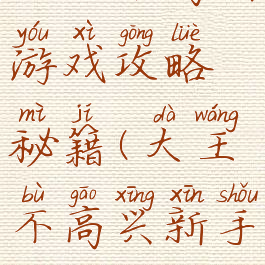 yóu xì gōng lüè
游戏攻略
mì jí dà wáng
秘籍(大王
bù gāo xīng xīn shǒu
不高兴新手